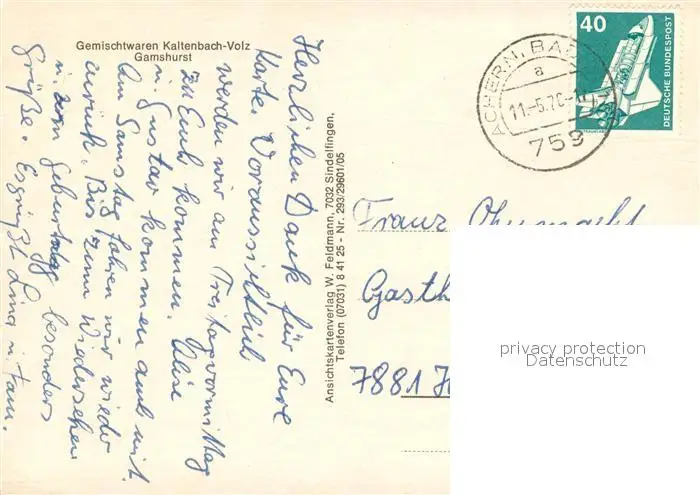 Gemischtwaren Kaltenbach-Volz
Gamshurst
Herzlichen Dank für Eure
Karte. Voraussichtlich
werden wir am Freitagvormittag
zu Euch kommen. Elise
u. Gustav kommen auch mit.
Am Samstag fahren wir wieder
zurück. Bis zum Wiedersehen
u. zum Geburtstag besonders
Grüße. Es grüßt Lina u. Fam.
Ansichtskartenverlag W. Feldmann, 7032 Sindelfingen,
Telefon (07031) 8 41 25 - Nr. 293/29601/05
ACHERN, BAD
a
11.-5.76.-17
759
40
DEUTSCHE BUNDESPOST
Franz
Gasth
7881
privacy protection
Datenschutz